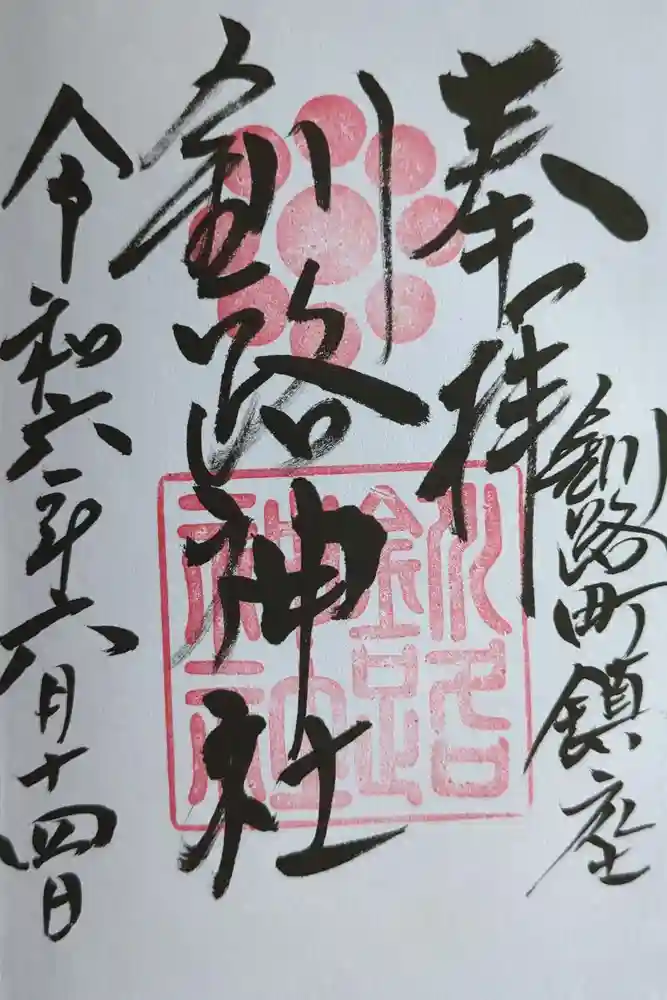 奉拝
釧路町鎮座
釧路神社
釧路神社
令和六年六月十四日